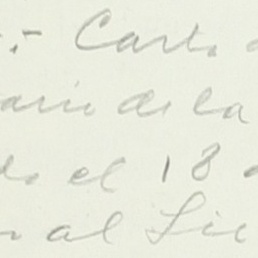 .- Carta
ario de la
do el 18
al Lic